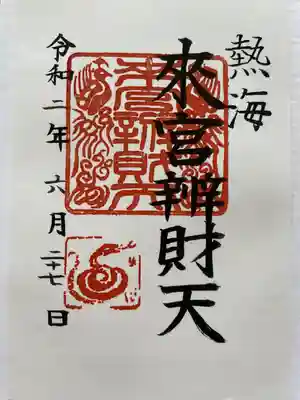 熱海
來宮辨財天
令和二年六月二十七日